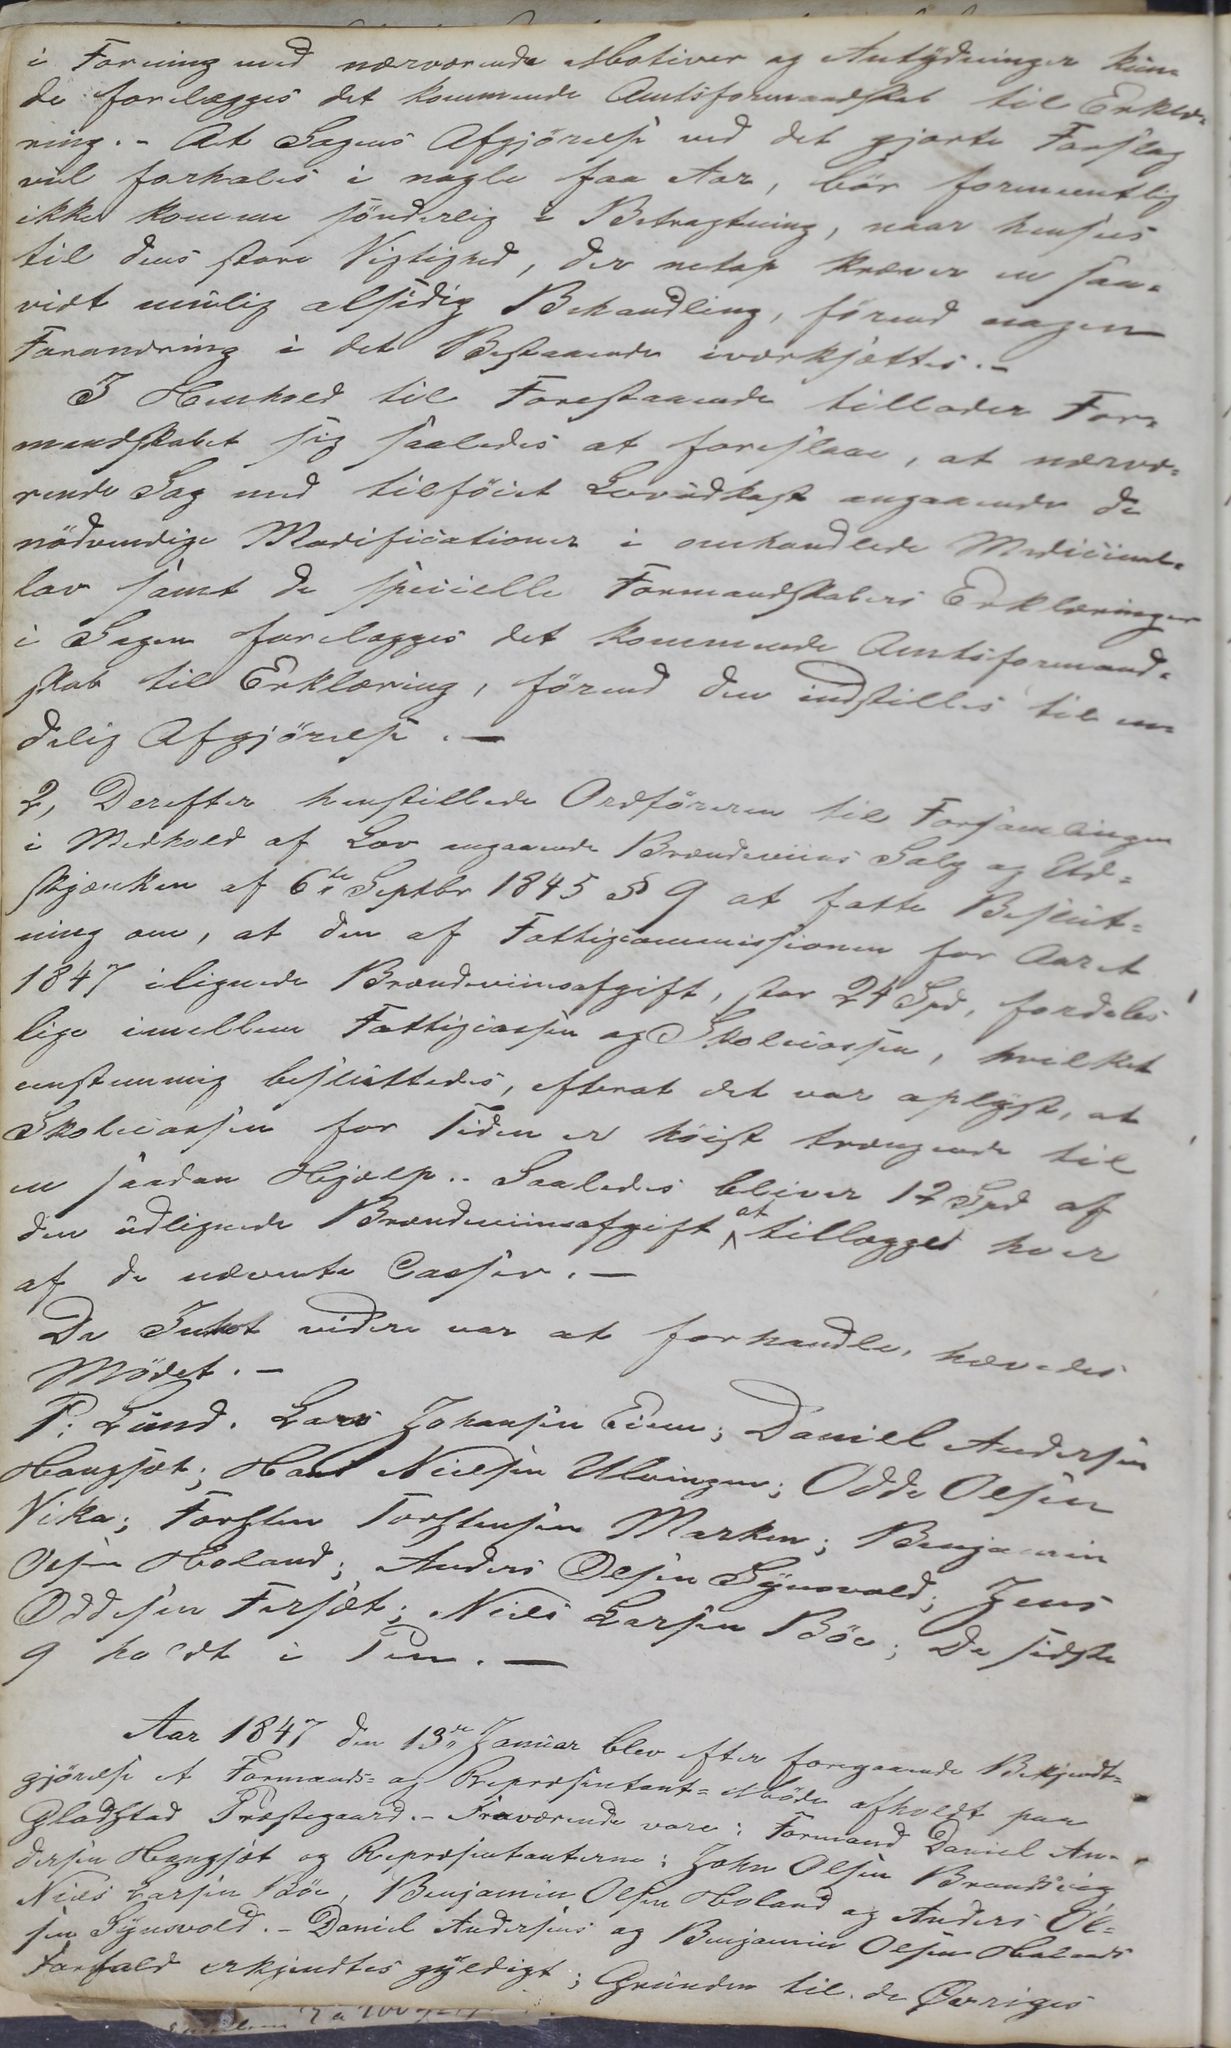 i Forening med nærværende Motiver og Antydninger kun-
de forelægges det kommende Amtsformandskab til Erklæ-
ring. - At Sagens Afgjörelse ved det gjorte Forslag
vil forhales i nogle faa Aar, bör formeentlig
ikke komme sönderlig i Betragtning, naar hensees
til dens store Vigtighed, der netop kræver en saa-
vidt mulig alsidig Behandling, förend nogen
Forandring i det Bestaaende iværksættes. -
I Henhold til Forestaaende tillader For-
mandskabet sig saaledes at foreslaae, at nærvæ-
rende Sag med tilföiet Lovudkast angaaende de
nödvendige Modificationer i omhandlede Medicinal-
lov samt de specielle Formandskabers Erklæringer
i Sagen forelægges det kommende Amtsformand-
skab til Erklæring, förend den indstilles til en-
delig Afgjörelse. -
2, Derefter henstillede Ordföreren til Forsamlingen
i Medhold af Lov angaaende Brændeviins Salg og Ud-
skjænken af 6te Septbr 1845 § 9 at fatte Beslut-
ning om, at den af Fattigcommissionen for Aaret
1847 ilignede Brændeviinsafgift, stor 24 Spd, fordeles
lige imellem Fattigcassen og Skolecassen, hvilket
eenstemmig besluttedes, efterat det var oplyst, at
Skolecassen for Tiden er höist trængende til
en saadan Hjælp. - Saaledes bliver 12 Spd af
den udlignede Brændeviinsafgift at tillægges hver
af de nævnte Casser. -
Da Intet videre var at forhandle, hævedes
Mödet. -
P. Lund. Lars Johansen Eiem; Daniel Andersen
Hongset; Hans Nielsen Ulvingen; Odde Olsen
Vika; Torsten Torstensen Marken; Benjamin
Olsen Holand; Anders Olsen Synsvold; Jens
Oddesen Forset; Niels Larsen Böe; De sidste
9 holdt i Pen. -
Aar 1847 den 13de Januar blev efter foregaaende Bekjendt-
gjörelse et Formands- og Repræsentant-Möde afholdt paa
Gladstad Præstegaard. - Fraværende vare: Formand Daniel An-
dersen Hongset og Repræsentanterne: John Olsen Brandsvig
Niels Larsen Böe, Benjamin Olsen Holand og Anders Ol-
sen Synsvold. - Daniel Andersens og Benjamin Olsen Holands
Forfald erkjendtes gyldigt; Grunden til de Övriges